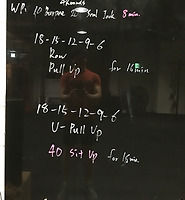 4 Rounds
WP: 10 Burpee 20 Jack 8min.
18-15-12-9-6
Row
Pull Up for 16min
18-15-12-9-6
U-Pull Up
40 Sit Up for 15min.